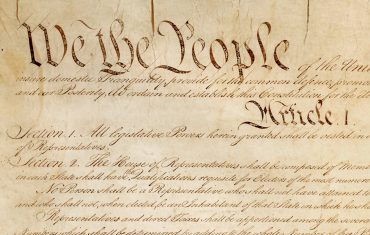 We the People of the Unit
insure domestic Tranquility, provide for the common defence, promo
and our Posterity, do ordain and establish this Constitution for the
Article I.
Section 1. All legislative Powers herein granted shall be vested in
of Representatives.
Section 2. The House of Representatives shall be composed of Mem
in each State shall have Qualifications requisite for Electors of the most numerou
No Person shall be a Representative who shall not have attained to
and who shall not, when elected, be an Inhabitant of that State in which he sha
Representatives and direct Taxes shall be apportioned among the severa
Numbers, which shall be determined